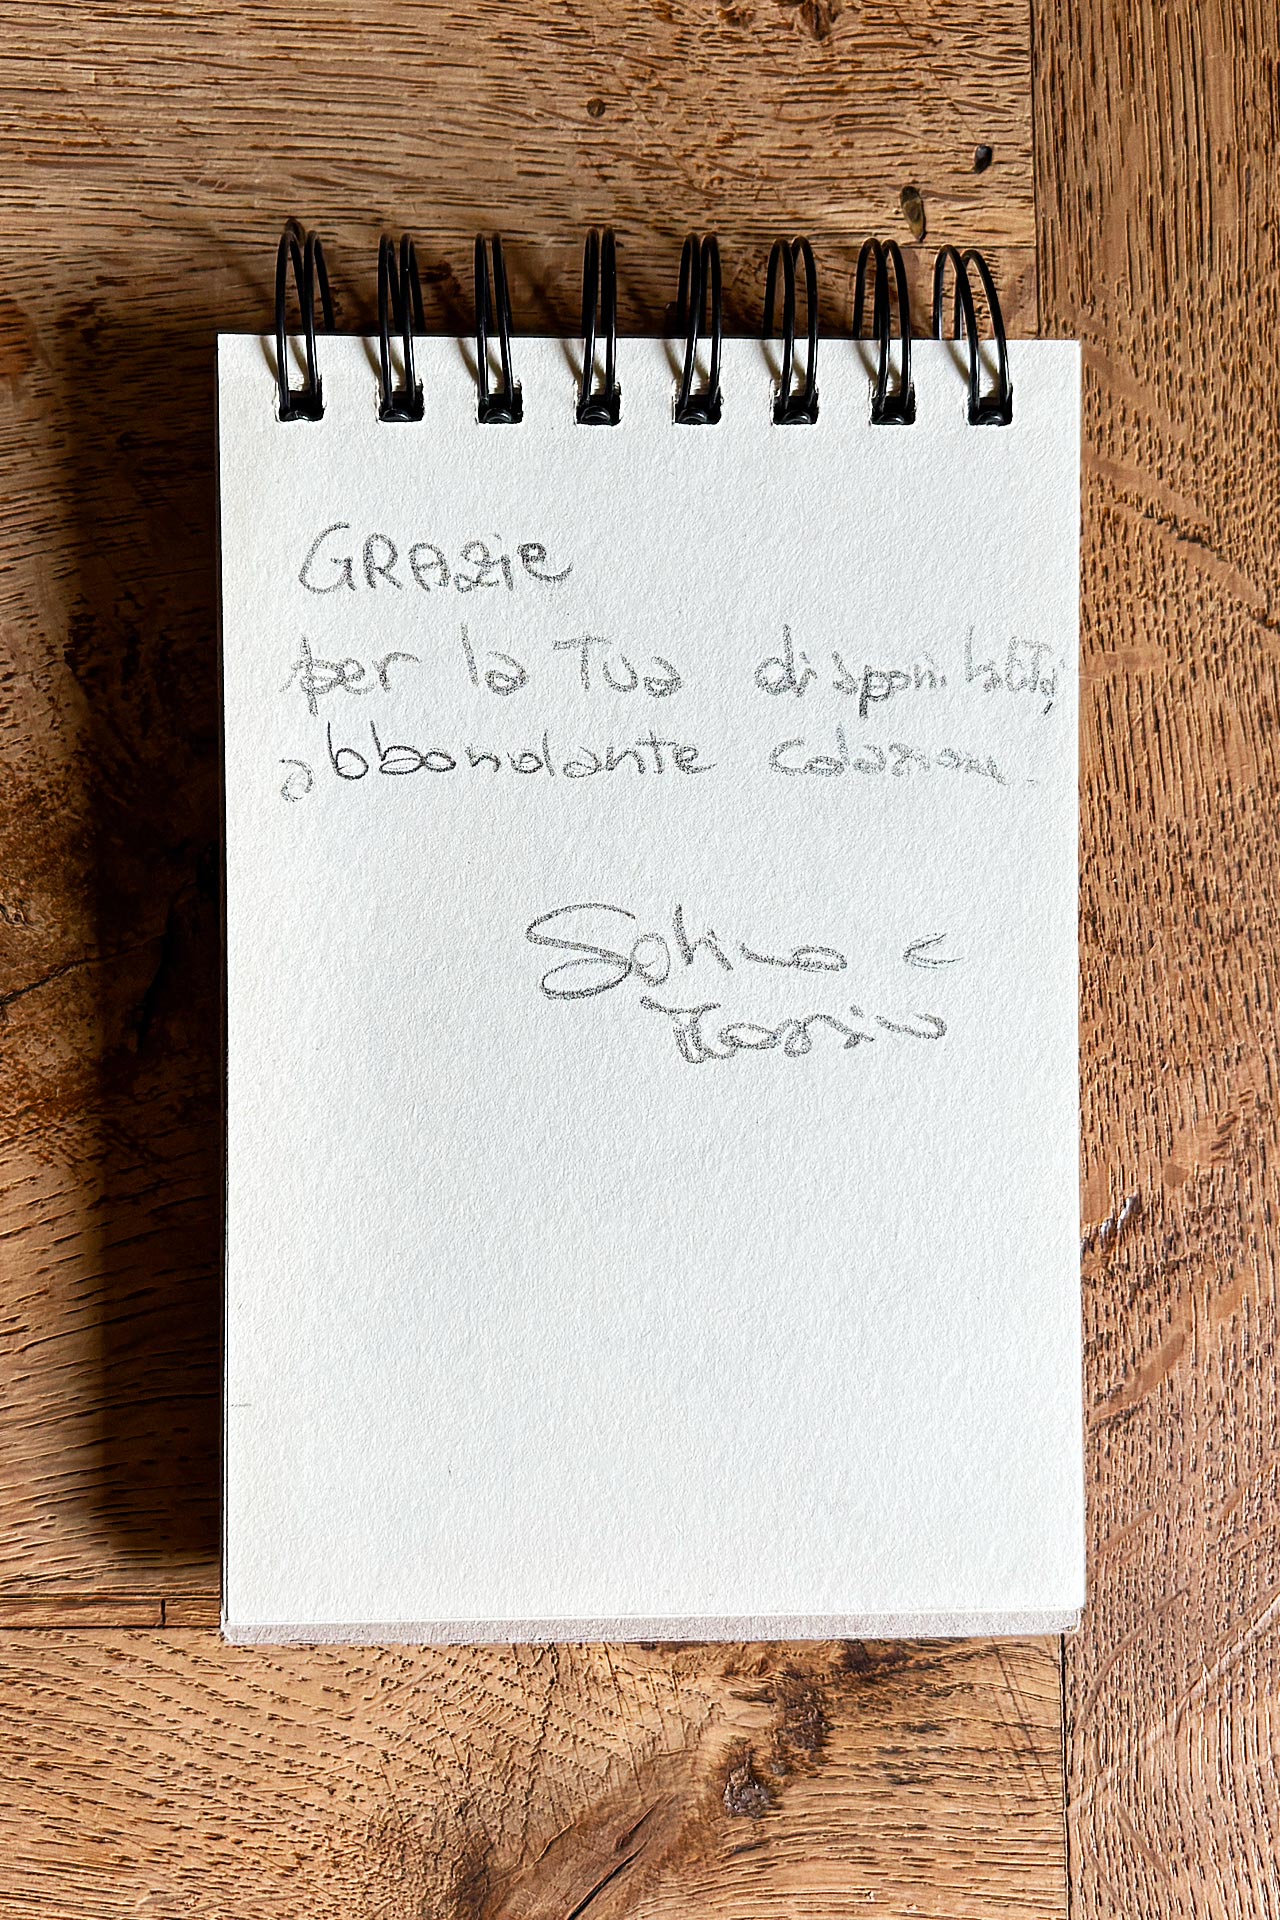 GRAZie
per la Tua disponibilità,
abbondante colazione.
e